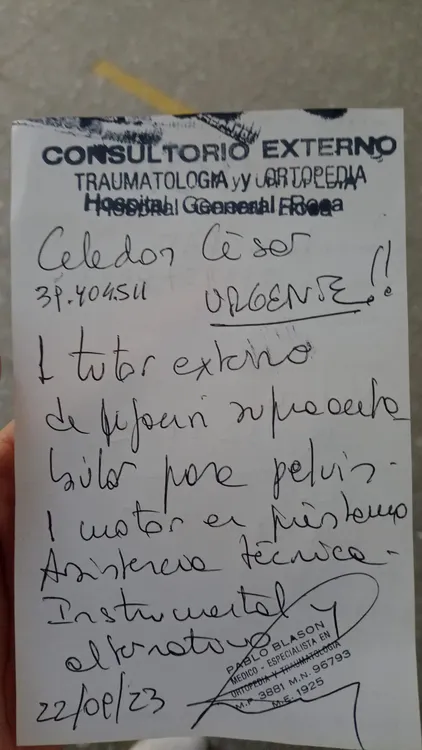 CONSULTORIO EXTERNO
TRAUMATOLOGIA y ORTOPEDIA
Hospital General Roca
Celedon César
39.404.511 URGENTE!!
1 tutor externo
de fijación supraaceta
bular para pelvis.
1 motor en préstamo
Asistencia técnica.
Instrumental
alternativo
22/09/23
PABLO BLASON
MEDICO - ESPECIALISTA EN
ORTOPEDIA Y TRAUMATOLOGIA
M.P. 3881 M.N. 96793
M.E. 1925